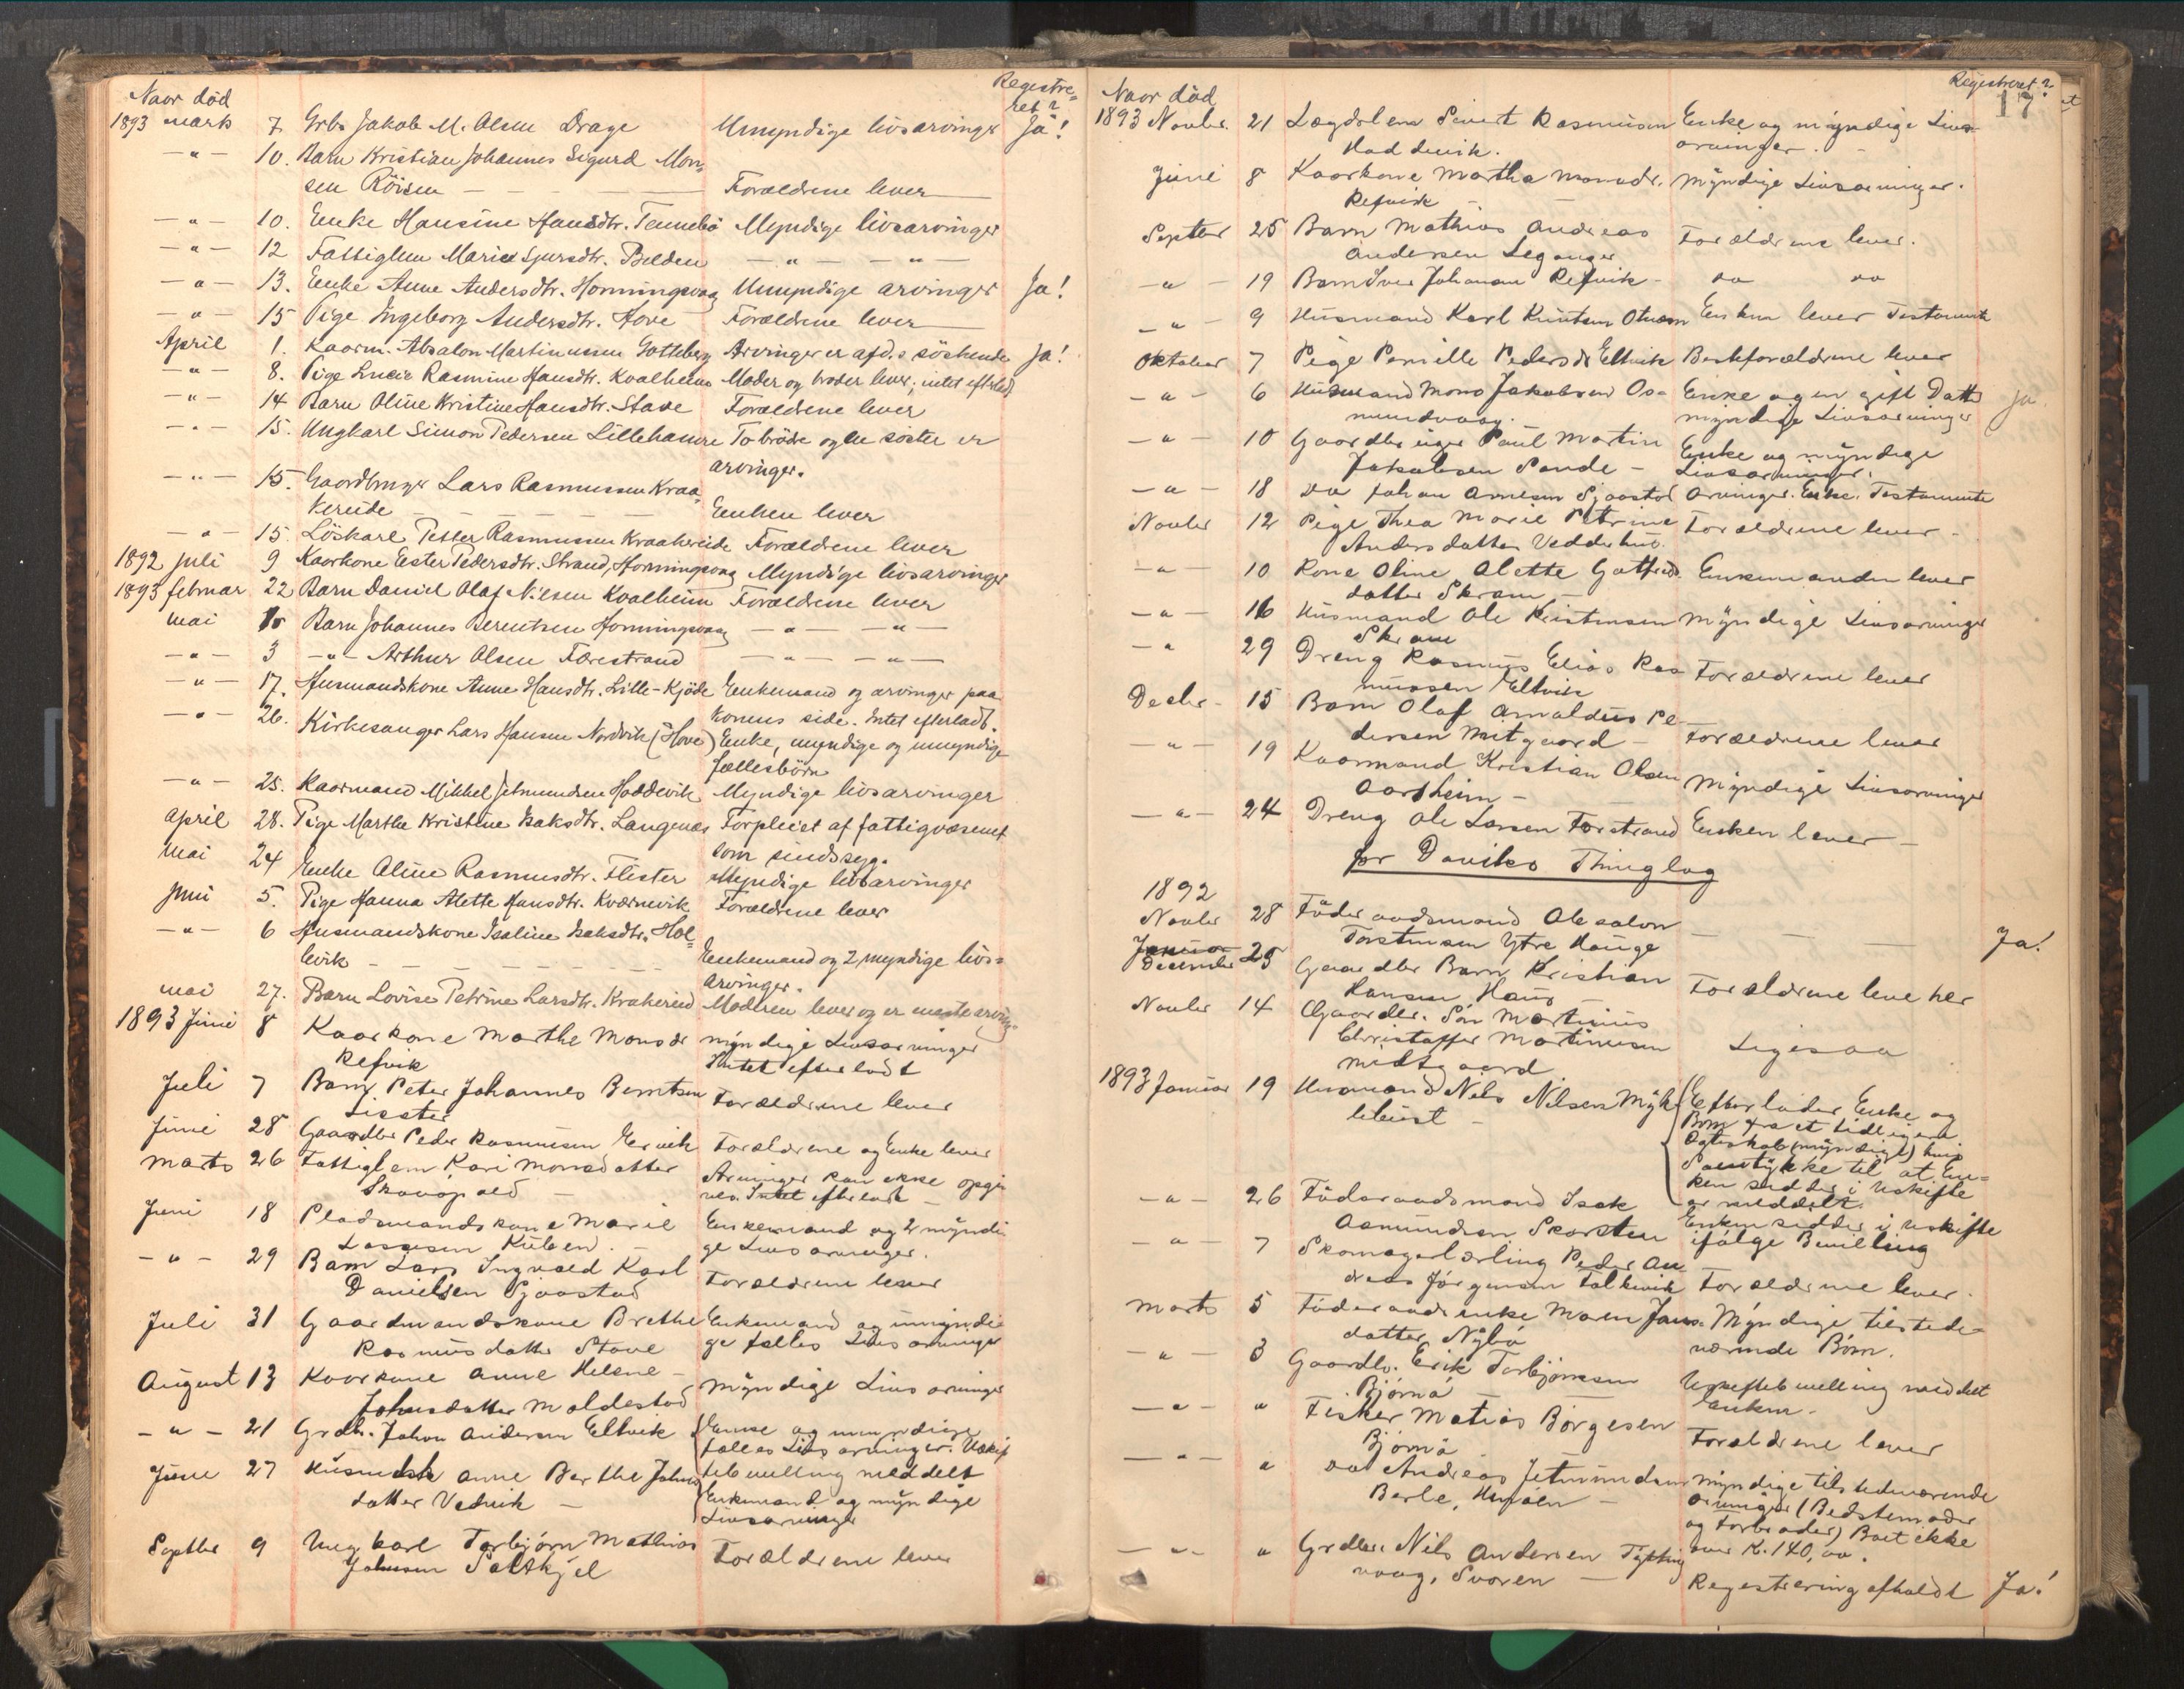 Naar död
Registre=
ret?
1893 mars 7 Grbr Jakob M. Olsen Drage Umyndige livsarvinger Ja!
— " — 10. Barn Kristian Johannes Sigurd Mon=
sen Röisen — — — Forældrene lever
— " — 10. Enke Hansine Hansdtr. Tennebö Myndige livsarvinger
— " — 12 Fattiglem Maria Sjursdtr. Belden — " — — " —
— " — 13. Enke Anne Andersdtr. Honningsvaag Umyndige arvinger Ja!
— " — 15 Pige Ingeborg Andersdtr. Hove Forældrene lever
April 1. Kaarm. Absalon Martinussen Gotteberg Arvinger er afd. s söskende Ja!
— " — 8. Pige Lucie Rasmine Hansdtr. Kvalheim Moder og broder lever; intet efterladt
— " — 14 Barn Oline Kristine Hansdtr. Stave Forældrene lever
— " — 15. Ungkarl Simon Pedersen Lillehamre To brödre og en söster er
arvinger.
— " — 15. Gaardbruger Lars Rasmussen Kraa=
kereide — — — Enken lever
— " — 15. Löskarl Petter Rasmussen Kraakereide Forældrene lever
1892 juli 9 Kaarkone Ester Pedersdtr. Strand, Honningsvaag Myndige livsarvinger
1893 februar 22 Barn Daniel Olaf Nilsen Kvalheim Forældrene lever
mai 10 Barn Johannes Berentsen Honningsvaag — " — — " —
— " — 3 — " — Arthur Olsen Færestrand — " — — " —
— " — 17. Husmandskone Anne Hansdtr. Lille-Kjöde Enkemand og arvinger paa
konens side. Intet efterladt.
— " — 26. Kirkesanger Lars Hansen Nordvik (Hove) Enke, myndige og umyndige
fællesbörn
— " — 25. Kaarmand Mikkel Jetmundsen Hoddevik Myndige livsarvinger
April 28. Pige Marthe Kristine Isaksdtr. Langenes Forpleiet af fattigvæsenet
som sindssyg.
Mai 24 Enke Oline Rasmusdtr. Flister Myndige livsarvinger
Juni 5. Pige Hanna Alette Hansdtr. Kvernevik Forældrene lever
— " — 6 Husmandskone Isaline Isaksdtr. Hol=
evik — — — Enkemand og 2 myndige livs=
arvinger.
mai 27. Barn Lovise Petrine Larsdtr. Krakereid Moderen lever og er eneste arving
1893 Juni 8 Kaarkone Marthe Monsdr myndige Livsarvinger
Refvik Intet efterladt
Juli 7 Barn Peter Johannes Berntsen Forældrene lever
Lister
Juni 28 Gaardbr Peder Rasmusen Ervik Forældrene og Enke lever
Marts 26 Fattiglem Kari Monsdatter Arvinger kan ikke opgi
Skaarpold — ves. Intet efterladt —
Juni 18 Pladsmandskone Marie Enkemand og 2 myndi
Lassesen Kuben. — ge Livsarvinger.
— " — 29 Barn Lars Ingvald Karl Forældrene lever
Danielsen Sjaastad
Juli 31 Gaardmandskone Brethe Enkemand og umyndi
Rasmusdatter Stave ge fælles Livsarvinger
August 13 Kaarkone Anne Helene — Myndige Livsarvinger
Johnsdatter Moldestad
— " — 21 Grdbr. Johan Andersen Eltvik Enke og umyndige
fælles Livsarvinger. Uskif
Juni 27 Husmdsk Anne Berthe Johns tebevilling meddelt
datter Vedvik — Enkemand og myndige
Livsarvinger
Septbr 9 Ungkarl Torbjørn Mathias Forældrene lever
Johnsen Saltkjel
Naar död
Registreret?
17
1893 Novbr. 21 Lægdslem Sivert Rasmusen Enke og myndige Livs-
Haddevik. arvinger. —
Juni 8 Kaarkone Martha Monsdr. Myndige Livsarvinger.
Refvik
Septbr 25 Barn Mathias Andreas Forældrene lever.
Andersen Leganger
— " — 19 Barn Iver Johansen Refvik — do do
— " — 9 Husmand Karl Knutsen Otnæsn Enken lever Testamente
Oktober 7 Pige Pernille Pedersdr Eltvik Bestforældrene lever
— " — 6 Husmand Mons Jakobsen Os= Enke og en gift Dattr Ja
mundvaag. myndige Livsarvinger
— " — 10 Gaardbruger Paul Martin Enke og myndige
Jakobsen Sande — Livsarvinger.
— " — 18 do Johan Arnesen Sjaastad Arvinger. Enke. Testamente
Novbr 12 Pige Thea Marie Petrine Forældrene lever —
Andersdatter Vedderhus.
— " — 10 Kone Oline Alette Gotfreds Enkemanden lever
datter Skram —
— " — 16 Husmand Ole Kristensen Myndige Livsarvinger
Skram
— " 29 Dreng Rasmus Elias Ras Forældrene lever
mussen Eltvik
Decbr — 15 Barn Olaf Arnoldus Pe-
dersen Mitgaard — Forældrene lever
— " — 19 Kaarmand Kristian Olsen Myndige Livsarvinger
Aarsheim —
— " — 24 Dreng Ole Larsen Forstrand Enken lever —
for Daviks Thinglag
1892
Novbr 28 Föderaadsmand Absalon — — Ja!
Torstensen Ytre Hauge
Januar
December 25 Gaardbr Barn Kristian Forældrene leve her
Hansen Haus —
Novbr 14 Gaardbr. Sön Martinus
Christoffer Martinusen Ligesaa
Midtgaard
1893 Januar 19 Husmand Nils Nilsen Myk Efterlader Enke og
lebust — Børn fra et tidligere
Ægteskab (myndige) hvis
Samtykke til at En-
ken sidder i Uskifte
er meddelt.
— " — 26 Föderaadsmand Isak Enken sidder i uskifte
Asmundsen Skorsten ifølge Bevilling
— " — 7 Skomagerlærling Peder An
dreas Jörgensen Falkevik Forældrene lever.
Marts 5 Föderaadsenke Maren Jans= Myndige tilstede-
datter Nybö værende Børn.
— " — 3 Gaardbr. Erik Torbjørnsen Uskiftebevilling meddelt
Bjørnö — Enken.
— " — " Fisker Matias Börgesen
Bjørnö Forældrene lever
— " — " do Andreas Jetmundsen Myndige tilstedeværende
Berle, — Arvinger (Bedstemoder
og Forbroder) Boet ikke
over Kr. 140,00.
— " — " Grdbr. Nils Andersen
vaag, Svoren — Registrering afholdt Ja!